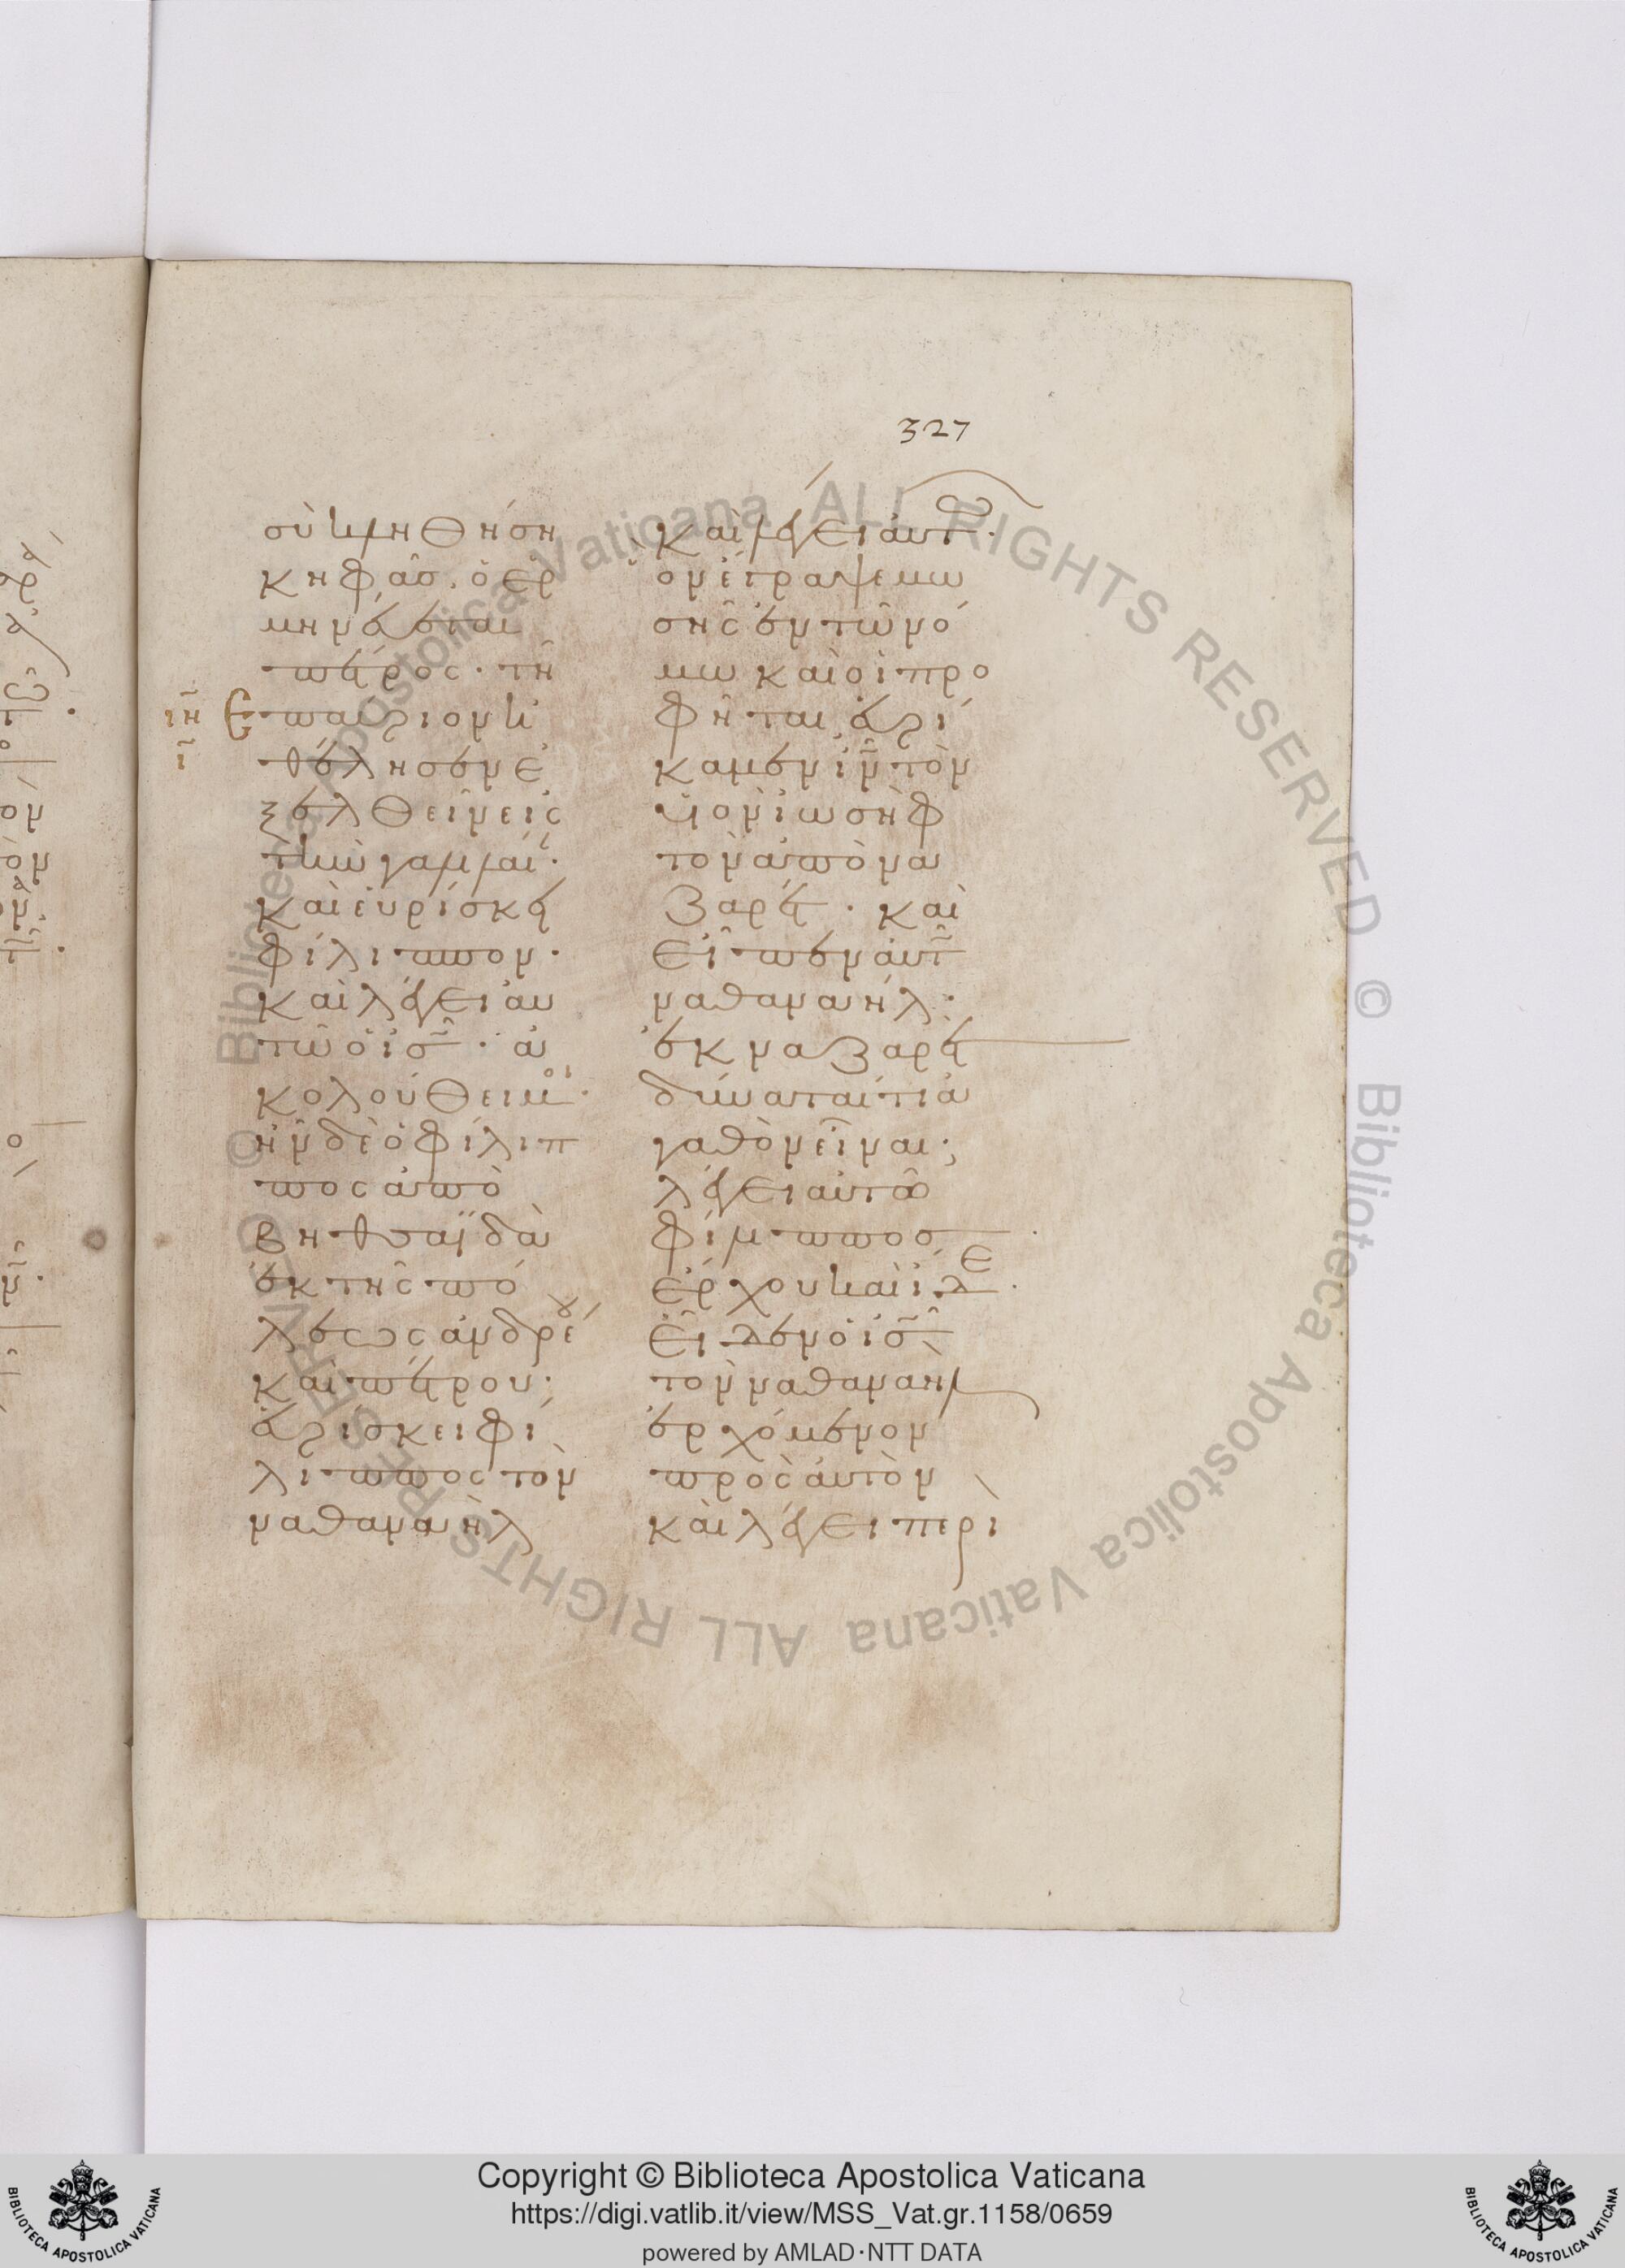 327
σὺ κληθήση
κηφᾶσ· ὁ ἑρ
μηνεύεται
πέτρος· τῆ
ιη Επαύριον κ
ι θέλησεν ἐ
ξελθεῖν εἰς
τὴν γαλιλαί·
καὶ εὑρίσκει
φίλιππον·
καὶ λέγει αυ
τῶ ὁ ις· ἀ
κολούθει μοι·
ἦν δὲ ὁ φίλιπ
πος ἀπὸ
βηθσαϊδὰ
ἐκ τῆς πό
λεως ἀνδρέου
καὶ πέτρου·
εὑρίσκει φί
λιππος τὸν
ναθαναὴλ
καὶ λέγει αὐτῶ·
ὃν ἔγραψε μω
σῆς ἐν τῶ νό
μω καὶ οἱ προ
φῆται εὑρή
καμεν ιν τὸν
υἱὸν ἰωσὴφ
τὸν ἀπὸ να
ζαρέτ· καὶ
εἶπεν αὐτῶ
ναθαναήλ·
ἐκ ναζαρέτ
δύναταί τι ἀ
γαθὸν εἶναι;
λέγει αὐτῶ
φίλιππος·
ἔρχου καὶ ἴδε·
εἶδεν ὁ ις
τὸν ναθαναὴλ
ἐρχόμενον
πρὸς αὐτὸν
καὶ λέγει περὶ
Copyright © Biblioteca Apostolica Vaticana
https://digi.vatlib.it/view/MSS_Vat.gr.1158/0659
powered by AMLAD·NTT DATA
BIBLIOTECA APOSTOLICA VATICANA
BIBLIOTECA APOSTOLICA VATICANA
© Biblioteca Apostolica Vaticana ALL RIGHTS RESERVED © Biblioteca Apostolica Vaticana ALL RIGHTS RESERVED